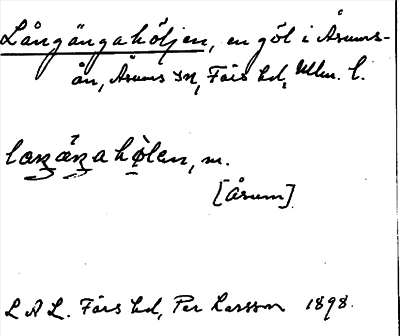 Långängahöljen, en göl i Åsums-
ån, Åsums sn, Färs hd, Mlm. l.
laŋäŋahölen, m.
[Åsum]
LAL. Färs hd, Per Larsson 1898.